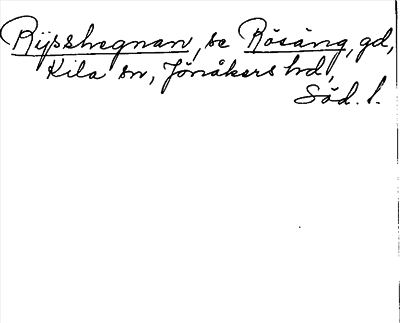 Rijsshegnan, se Rösäng, gd,
Kila sn, Jönåkers hd,
Söd. l.